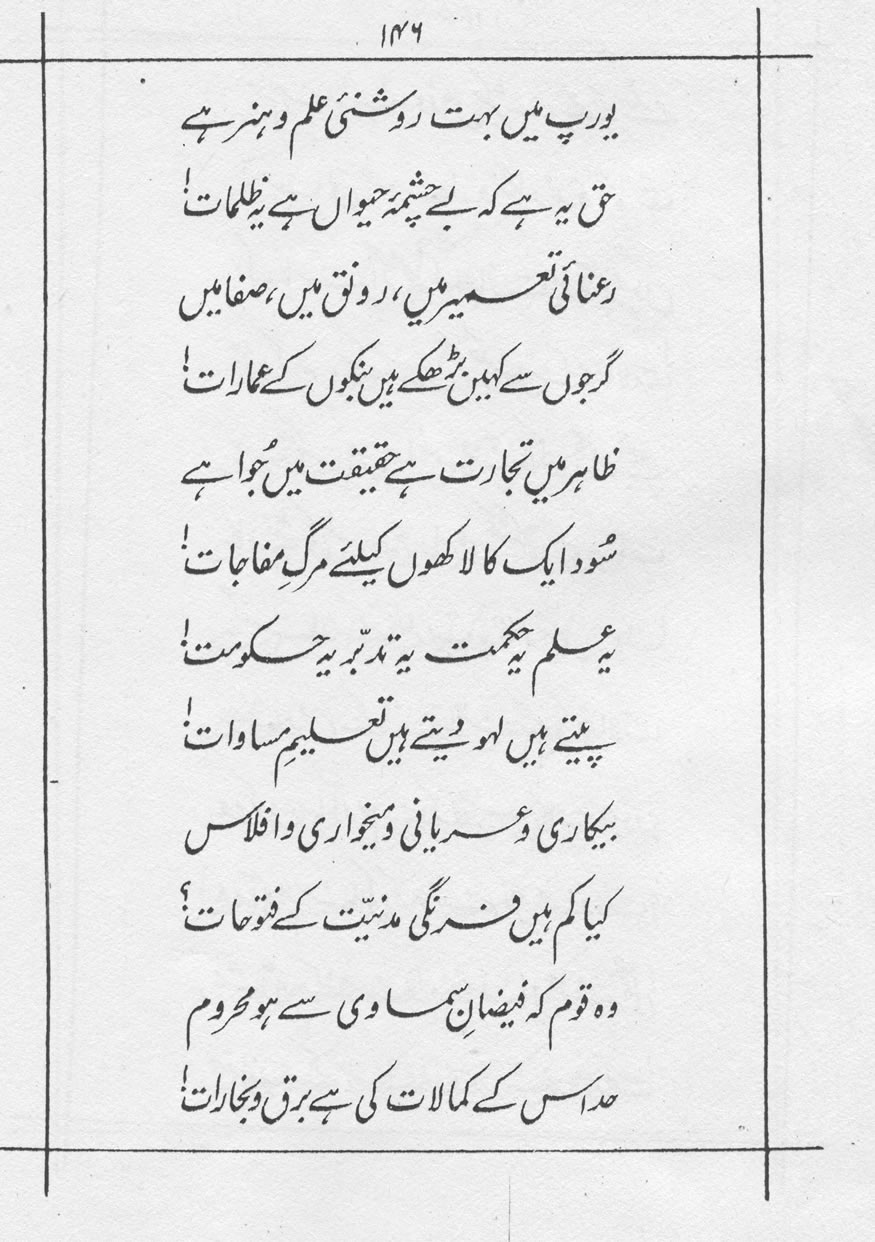 ۱۴۶
یورپ میں بہت روشنئ علم و ہنر ہے
حق یہ ہے کہ بے چشمۂ حیواں ہے یہ ظلمات!
رعنائی تعمیر میں، رونق میں، صفا میں
گرجوں سے کہیں بڑھکے ہیں بنکوں کے عمارات!
ظاہر میں تجارت ہے حقیقت میں جُوا ہے
سُود ایک کا لاکھوں کیلئے مرگِ مفاجات!
یہ علم یہ حکمت یہ تدبّر یہ حکومت!
پیتے ہیں لہو دیتے ہیں تعلیمِ مساوات!
بیکاری و عریانی و میخواری و افلاس
کیا کم ہیں فرنگی مدنیّت کے فتوحات؟
وہ قوم کہ فیضانِ سماوی سے ہو محروم
حد اس کے کمالات کی ہے برق و بخارات!